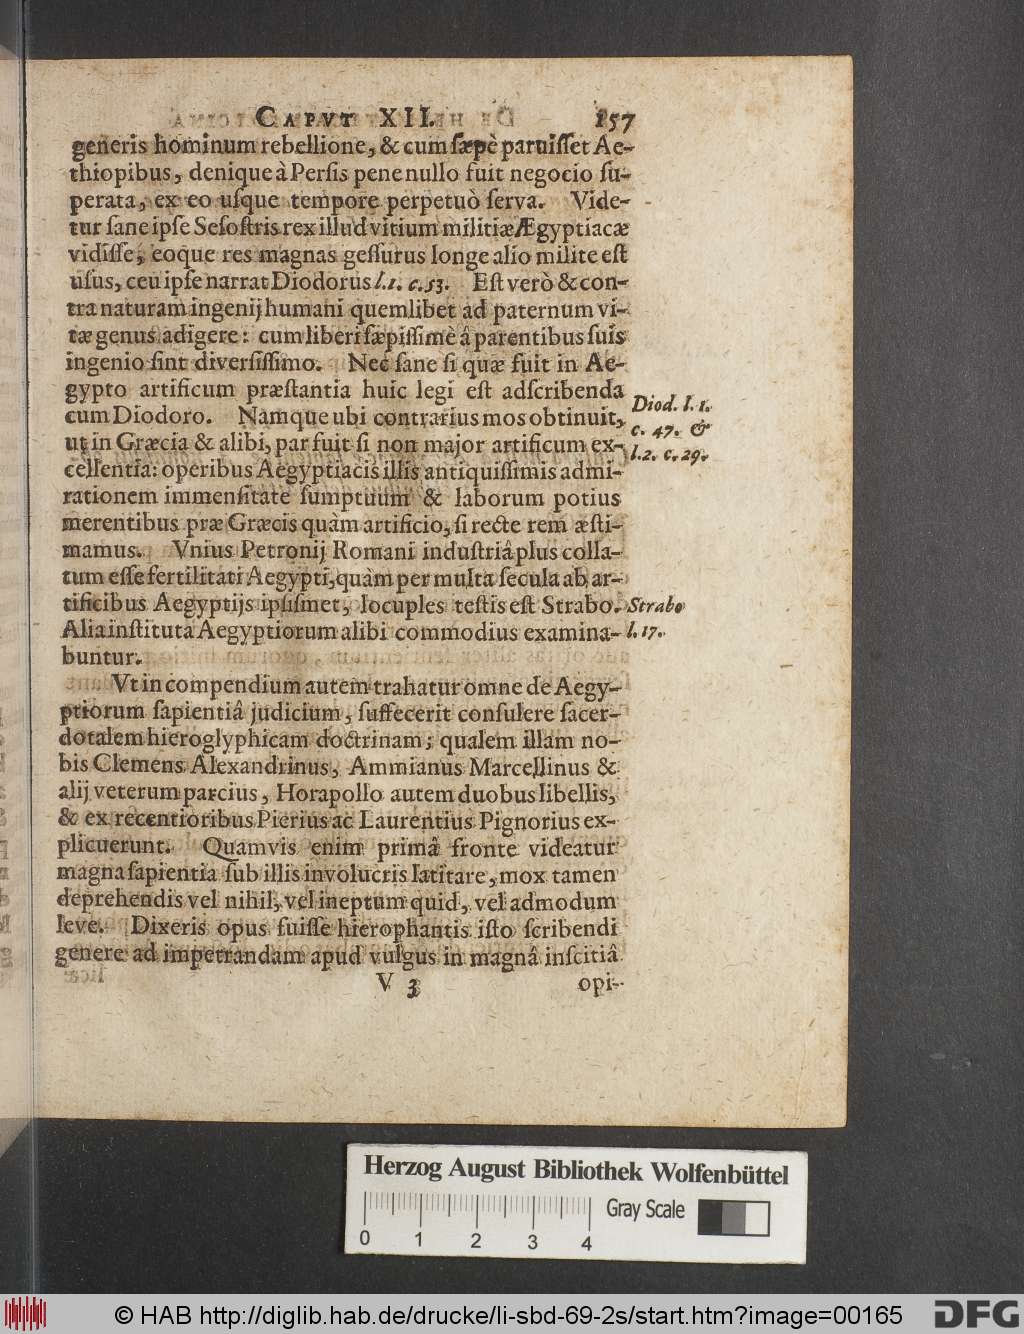 CAPVT XII. 157
generis hominum rebellione, & cum sæpè paruisset Ae-
thiopibus, denique à Persis pene nullo fuit negocio su-
perata, ex eo usque tempore perpetuò serva. Vide-
tur sane ipse Sesostris rex illud vitium militiæ Ægyptiacæ
vidisse, eoque res magnas gessurus longe alio milite est
usus, ceu ipse narrat Diodorus l.1. c.53. Est verò & con-
tra naturam ingenij humani quemlibet ad paternum vi-
tæ genus adigere: cum liberi sæpissimè â parentibus suis
ingenio sint diversissimo. Nec sane si quæ fuit in Ae-
gypto artificum præstantia huic legi est adscribenda
Diod. l. 1.
cum Diodoro. Namque ubi contrarius mos obtinuit,
c. 47. &
ut in Græcia & alibi, par fuit si non major artificum ex-
l.2. c.29.
cellentia: operibus Aegyptiacis illis antiquissimis admi-
rationem immensitate sumptuum & laborum potius
merentibus præ Græcis quàm artificio, si recte rem æsti-
mamus. Vnius Petronij Romani industriâ plus colla-
tum esse fertilitati Aegypti, quàm per multa secula ab ar-
tificibus Aegyptijs ipsismet, locuples testis est Strabo.
Strabo
Alia instituta Aegyptiorum alibi commodius examina-
l.17.
buntur.
Vt in compendium autem trahatur omne de Aegy-
ptiorum sapientiâ judicium, suffecerit consulere sacer-
dotalem hieroglyphicam doctrinam; qualem illam no-
bis Clemens Alexandrinus, Ammianus Marcellinus &
alij veterum parcius, Horapollo autem duobus libellis,
& ex recentioribus Pierius ac Laurentius Pignorius ex-
plicuerunt. Quamvis enim primâ fronte videatur
magna sapientia sub illis involucris latitare, mox tamen
deprehendis vel nihil, vel ineptum quid, vel admodum
leve. Dixeris opus fuisse hierophantis isto scribendi
genere ad impetrandam apud vulgus in magnâ inscitiâ
V 3 opi-
Herzog August Bibliothek Wolfenbüttel
Gray Scale
0 1 2 3 4
© HAB http://diglib.hab.de/drucke/li-sbd-69-2s/start.htm?image=00165
DFG